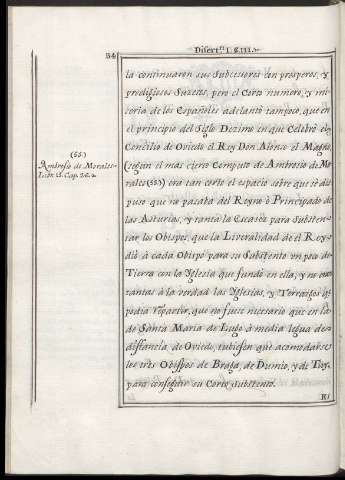 Disert.on I. §.III.
54
la continuaron sus Subcesores con prosperos, y
prodigiosos Suzesos, pero el Corto numero, y mi
toria de los Españoles adelantò tampoco, que en
el principio del Siglo Dezimo en que Celebrò el
Concilio de Oviedo el Rey Don Alonso el Magno,
(segun el mas cierto Computo de Ambrosio de Mo
rales(55)) era tan corto el espacio sobre que se dis
puso que no pasaba del Reyno ò Principado de
las Asturias, y tanta la Escaséz para Substen
tar los Obispos, que la Liveralidad de el Rey
diò à cada Obispo para su Substento un poco de
Tierra con la Yglesia que fundò en ella, y no eran
tantas à la verdad las Yglesias, y Terrazgos q.e
podia repartir, que no fuese necesario que en la
de Santa Maria de Lugo à media legua de
disstancia, de Oviedo, tubiesen que acomodarse
los tres Obispos de Braga, de Dumio, y de Tuy,
para conseguir su Corto Substento.
(55)
Ambrosio de Morales
Libr. 15. Cap. 26.